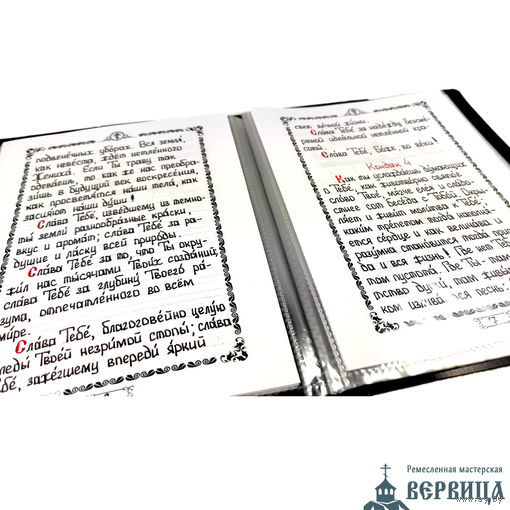 подвенечных уборах. Вся земля,
как невеста, ждёт нетленного
Жениха. Если Ты траву так
одеваешь, то как же нас преобра-
зишь в будущий век воскресения,
как просветятся наши тела, как
засияют наши души!
Слава Тебе, изведшему из темно-
ты земли разнообразные краски,
вкус и аромат; слава Тебе за ра-
душие и ласку всей природы.
Слава Тебе за то, что Ты окру-
жил нас тысячами Твоих созданий;
слава Тебе за глубину Твоего ра-
зума, отпечатленного во всём
мире.
Слава Тебе, благоговейно целую
следы Твоей незримой стопы; слава
Тебе, зажегшему впереди яркий
вечной жизни.
Слава Тебе за надежду бессме-
ртной идеальной нетленной кра-
соты.
Слава Тебе, Боже, во веки!
Кондак 4
Как Ты услаждаешь думающих
о Тебе, как животворно святое
слово Твоё, мягче елея и сладо-
стнее сот беседа с Тобой. Окры-
ляет и живит молитва к Тебе;
каким трепетом тогда наполня-
ется сердце и как величава и
разумна становится тогда приро-
да и вся жизнь! Где нет Тебя -
там пустота. Где Ты - там
богатство души, там живым
потоком изливается песнь:
7
Ремесленная мастерская
ВЕРВИЦА